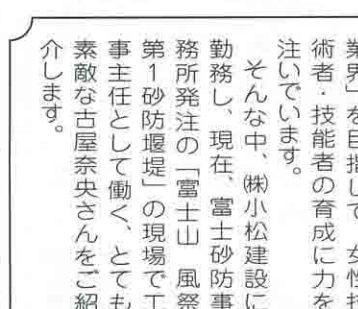 業界」を目指して、女性技
術者・技能者の育成に力を
注いでいます。
そんな中、㈱小松建設に
勤務し、現在、富士砂防事
務所発注の「富士山　風祭
第1砂防堰堤」の現場で工
事主任として働く、とても
素敵な古屋奈央さんをご紹
介します。